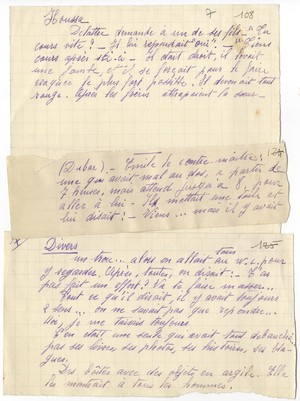 Houssa 7 108
Delattre demande à un de ses fils - "Tu
cours vite? - Et lui répondait "oui". - "Viens
cours après
une jambe, et il se forçait pour le faire
le plus fort possible. Il devenait tout
rouge. Après ses frères attrapaient la sœur -
(Dubar). - Emile le contre maître: 124
une qui avait mal au dos, à partir de
7 heures, mais attend jusqu'à 8 pour
aller à lui - Il mettait une
lui disait: - Viens... mais il y avait
Divers 185
Un truc... alors on allait tous au W.C. pour
y regarder. Après, toutes, on disait: - T'as
pas fait un effort? Va te faire masser...
Tout ce qu'il disait, il y avait toujours
2 sens... on ne savait pas que répondre...
Moi, je me taisais toujours
On était une seule qui avait tout débauché
par ses livres, ses photos, ses histoires, ses bla-
gues.
Des boîtes avec des objets en argile. Elle
les montrait à tous les hommes.